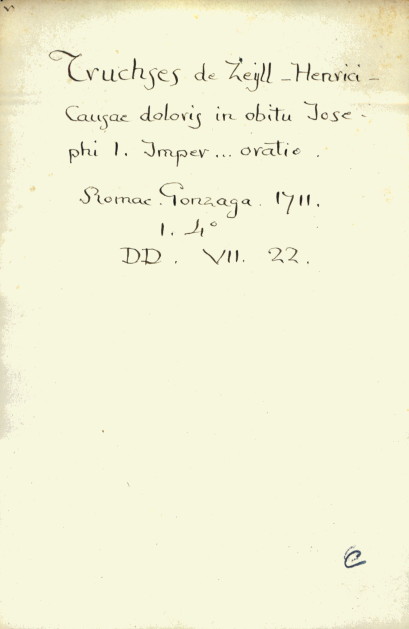 Truchses de Zeijll - Henrici -
Causae doloris in obitu Jose-
phi I. Imper... oratio.
Romae. Gonzaga. 1711.
1. 4°
DD. VII. 22.
C